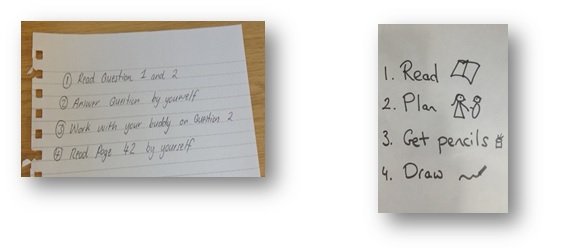 ① Read Question 1 and 2
② Answer Question by yourself
③ Work with your buddy on Question 2
④ Read Page 42 by yourself
1. Read
2. Plan
3. Get pencils
4. Draw